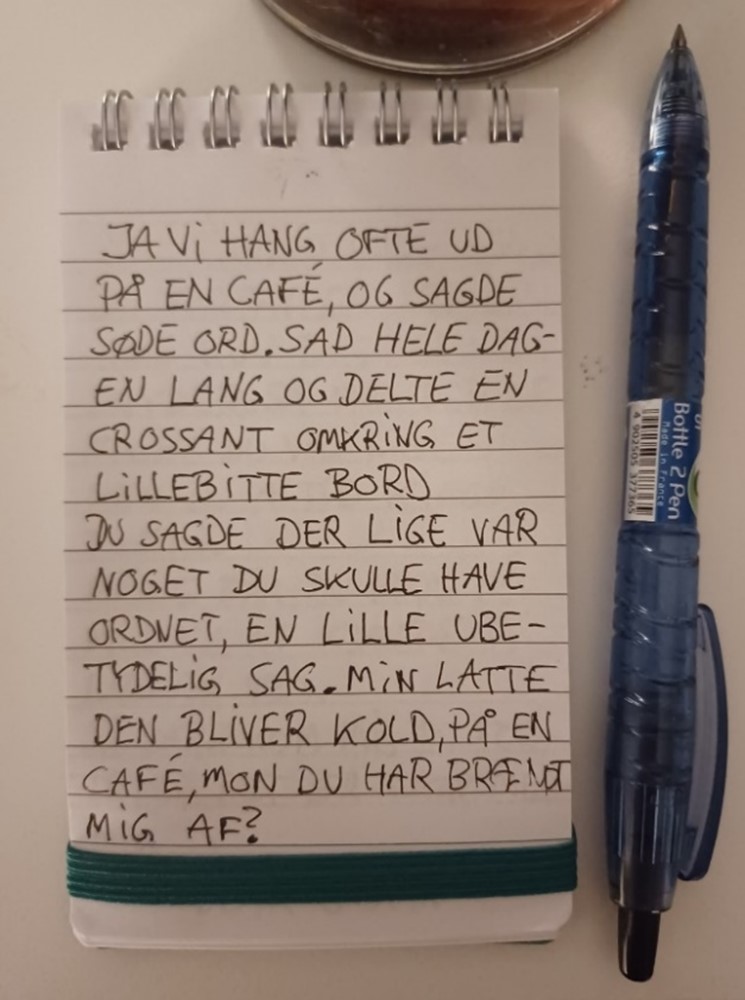 JA Vi HANG OFTE UD
PÅ EN CAFÉ, OG SAGDE
SØDE ORD. SAD HELE DAG-
EN LANG OG DELTE EN
CROSSANT OMKRiNG ET
LiLLEBiTTE BORD
DU SAGDE DER LiGE VAR
NOGET DU SKULLE HAVE
ORDNET, EN LiLLE UBE-
TYDELiG SAG. MiN LATTE
DEN BLiVER KOLD, PÅ EN
CAFÉ, MON DU HAR BRÆNDT
MiG AF?
Bottle 2 Pen
Made in France
4 902505 377365